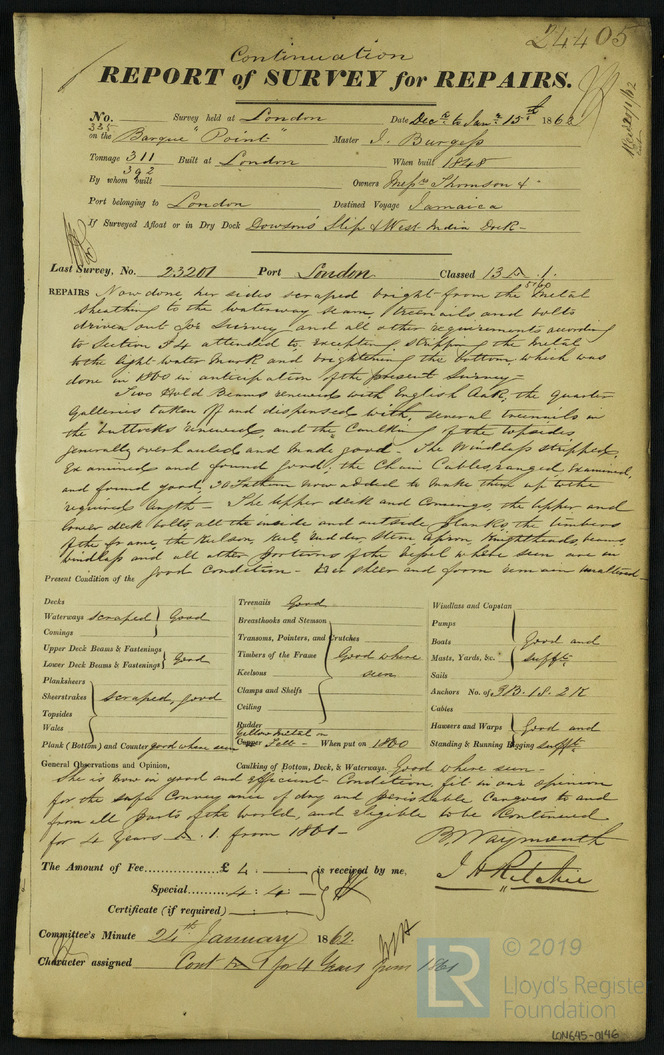 24405
Continuation
REPORT of SURVEY for REPAIRS.
No. 335 Survey held at London Date Decr to Janr 15th 1862
on the Barque "Point" Master J. Burgess
Tonnage 311 Built at London When built 1848
392
By whom built Owners Messrs Thomson &
Port belonging to London Destined Voyage Jamaica
If Surveyed Afloat or in Dry Dock Dowsons' Slip & West India Dock
Last Survey, No. 23201 Port London Classed 13 A 1.
5/60
REPAIRS Now done her sides scraped bright from the metal
sheathing to the waterway seam, treenails and bolts
driven out for survey and all other requirements according
to Section 54 attended to excepting stripping the metal
to the light water mark and brightening the bottom, which was
done in 1860 in anticipation of the present survey—
Two Hold Beams renewed with English Oak, the quarter
Galleries taken off and dispensed with, several treenails in
the buttocks renewed, and the Caulking of the topsides
generally overhauled and made good. The Windlass stripped,
Examined and found Good, the Chain Cables ranged Examined
and found good, 20 fathom now added to make them up to the
required length — The Upper deck and Comings, the Upper and
lower deck bolts, all the inside and outside planks, the timbers
of the frame, the Keelson, Keel, Rudder, Stem, Apron, Knightheads, beams,
windlass and all other portions of the Vessel where seen are in
good Condition — Her sheer and form remain unaltered—
Present Condition of the
Decks
Waterways scraped Good
Comings
Upper Deck Beams & Fastenings
Lower Deck Beams & Fastenings Good
Planksheers
Sheerstrakes scraped, good
Topsides
Wales
Plank (Bottom) and Counter good where seen
Treenails Good
Breasthooks and Stemson
Transoms, Pointers, and Crutches
Timbers of the Frame Good where
Keelsons seen
Clamps and Shelfs
Ceiling
Rudder
Yellow Metal on
Copper Felt — When put on 1860
Windlass and Capstan
Pumps
Boats Good and
Masts, Yards, &c. sufft
Sails
Anchors No. of 3B. 1S. 2K
Cables
Hawsers and Warps Good and
Standing & Running Rigging sufft
General Observations and Opinion, Caulking of Bottom, Deck, & Waterways. Good where seen —
She is now in good and Efficient Condition, fit in our opinion
for the safe Conveyance of dry and perishable Cargoes to and
from all parts of the world, and eligible to be Continued
for 4 Years A. 1. from 1861—
B. Waymouth
J H Ritchie
The Amount of Fee £ 4 : — : — is received by me,
Special 4 : 4 : —
Certificate (if required)
Committee's Minute 24th January 1862.
Character assigned Cont A 1 for 4 Years from 1861
© 2019
LR
Lloyd's Register
Foundation
LON645-0146